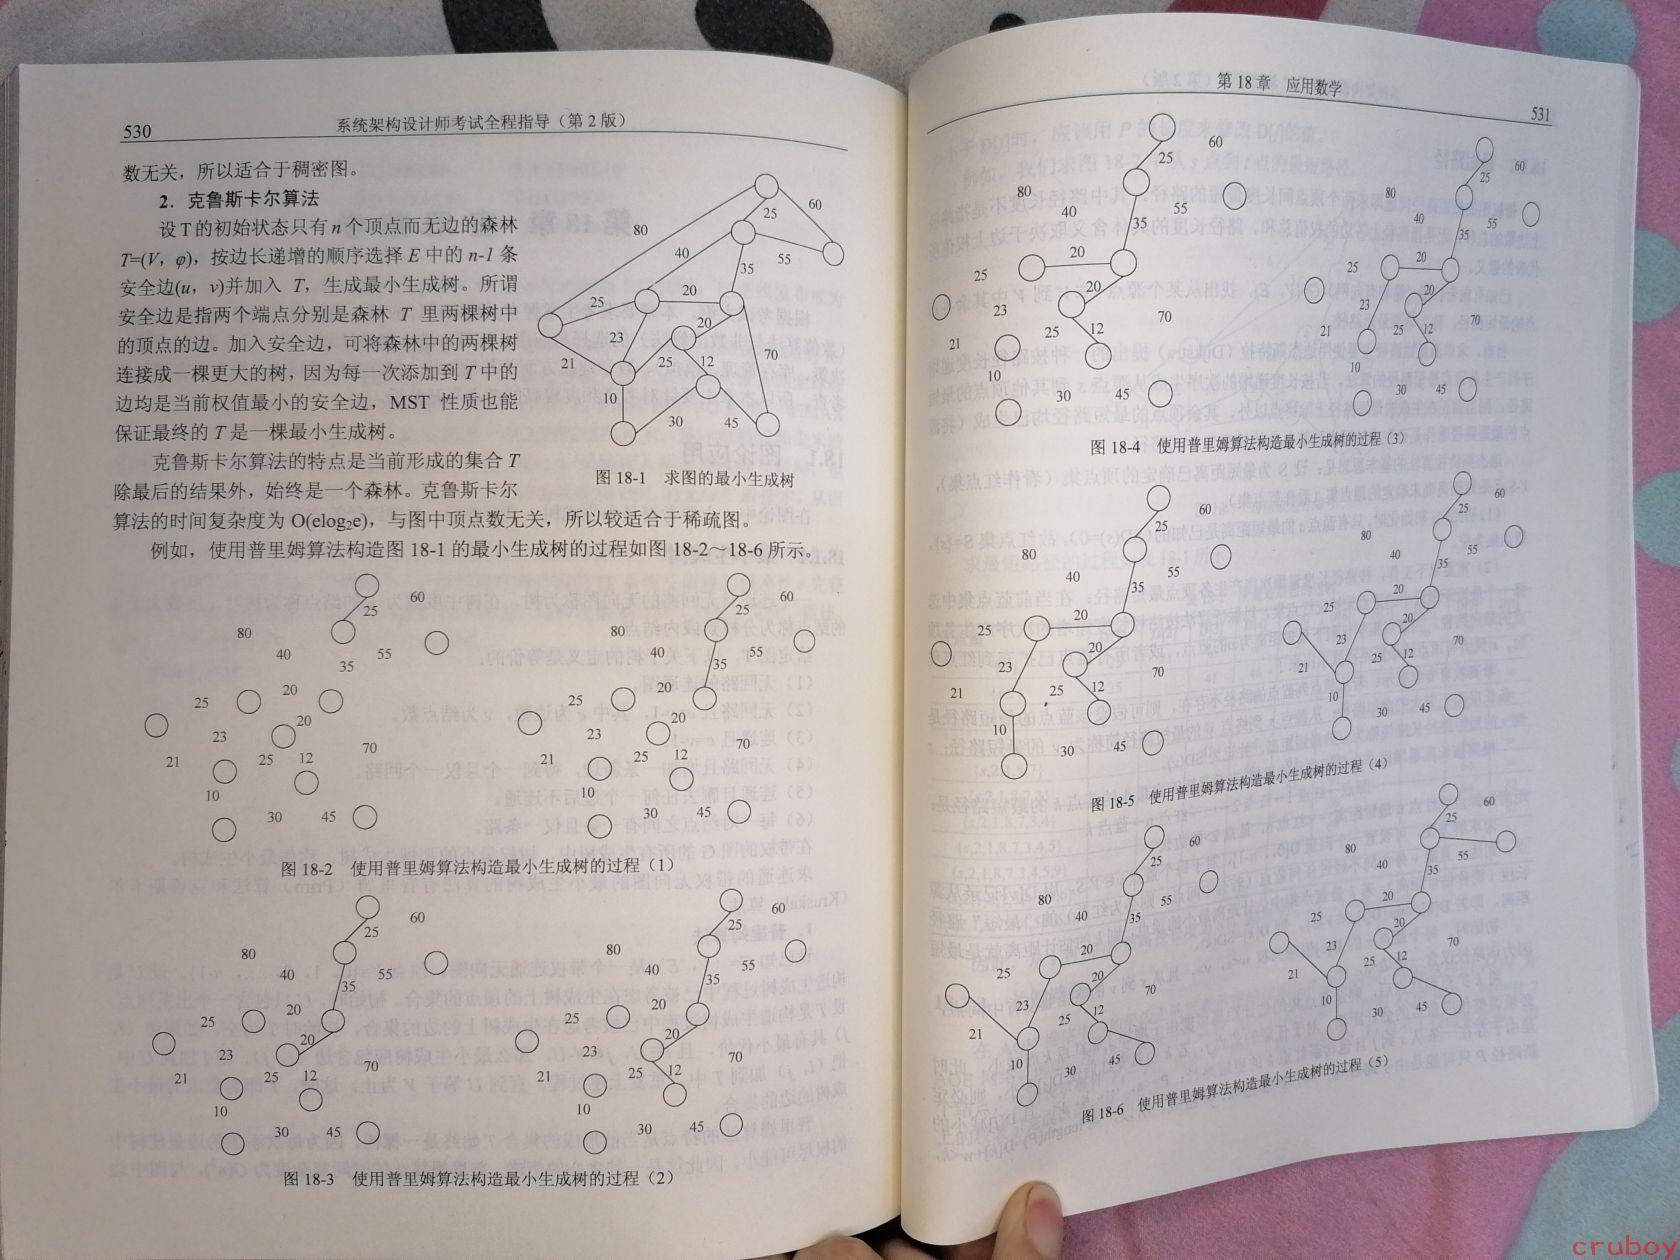 530
系统架构设计师考试全程指导（第2版）
数无关，所以适合于稠密图。
2．克鲁斯卡尔算法
设T的初始状态只有n个顶点而无边的森林
T=(V，φ)，按边长递增的顺序选择E中的n-1条
安全边(u，v)并加入 T，生成最小生成树。所谓
安全边是指两个端点分别是森林 T 里两棵树中
的顶点的边。加入安全边，可将森林中的两棵树
连接成一棵更大的树，因为每一次添加到T中的
边均是当前权值最小的安全边，MST 性质也能
保证最终的T是一棵最小生成树。
克鲁斯卡尔算法的特点是当前形成的集合T
除最后的结果外，始终是一个森林。克鲁斯卡尔
算法的时间复杂度为O(elog₂e)，与图中顶点数无关，所以较适合于稀疏图。
80
25
60
40
55
35
25
20
20
23
21
25
12
70
10
30
45
图 18-1 求图的最小生成树
例如，使用普里姆算法构造图 18-1 的最小生成树的过程如图 18-2～18-6 所示。
60
25
80
40
55
35
20
25
20
23
70
21
25
12
10
30
45
60
25
80
55
40
35
25
20
20
23
70
21
25
12
10
30
45
图 18-2 使用普里姆算法构造最小生成树的过程（1）
60
25
80
40
35
20
25
20
23
70
21
25
12
10
30
45
60
25
80
55
40
35
20
25
20
23
70
21
25
12
10
30
45
图 18-3 使用普里姆算法构造最小生成树的过程（2）
第 18 章 应用数学
531
60
25
80
40
55
35
20
25
20
23
70
21
25
12
10
30
45
60
25
80
40
55
35
20
25
20
23
70
21
25
12
10
30
45
图 18-4 使用普里姆算法构造最小生成树的过程（3）
60
25
80
40
55
35
20
25
20
23
70
21
25
12
10
30
45
60
25
80
40
55
35
20
25
20
23
70
21
25
12
10
30
45
图 18-5 使用普里姆算法构造最小生成树的过程（4）
60
25
80
40
55
35
20
25
20
23
70
21
25
12
10
30
45
60
25
80
40
55
35
20
25
20
23
70
21
25
12
10
30
45
图 18-6 使用普里姆算法构造最小生成树的过程（5）
cruboy